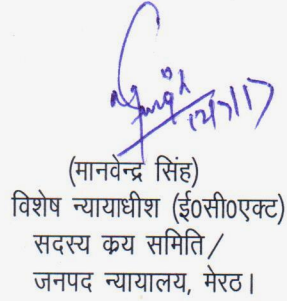 12/7/17
(मानवेन्द्र सिंह)
विशेष न्यायाधीश (ई०सी०एक्ट)
सदस्य क्रय समिति/
जनपद न्यायालय, मेरठ।